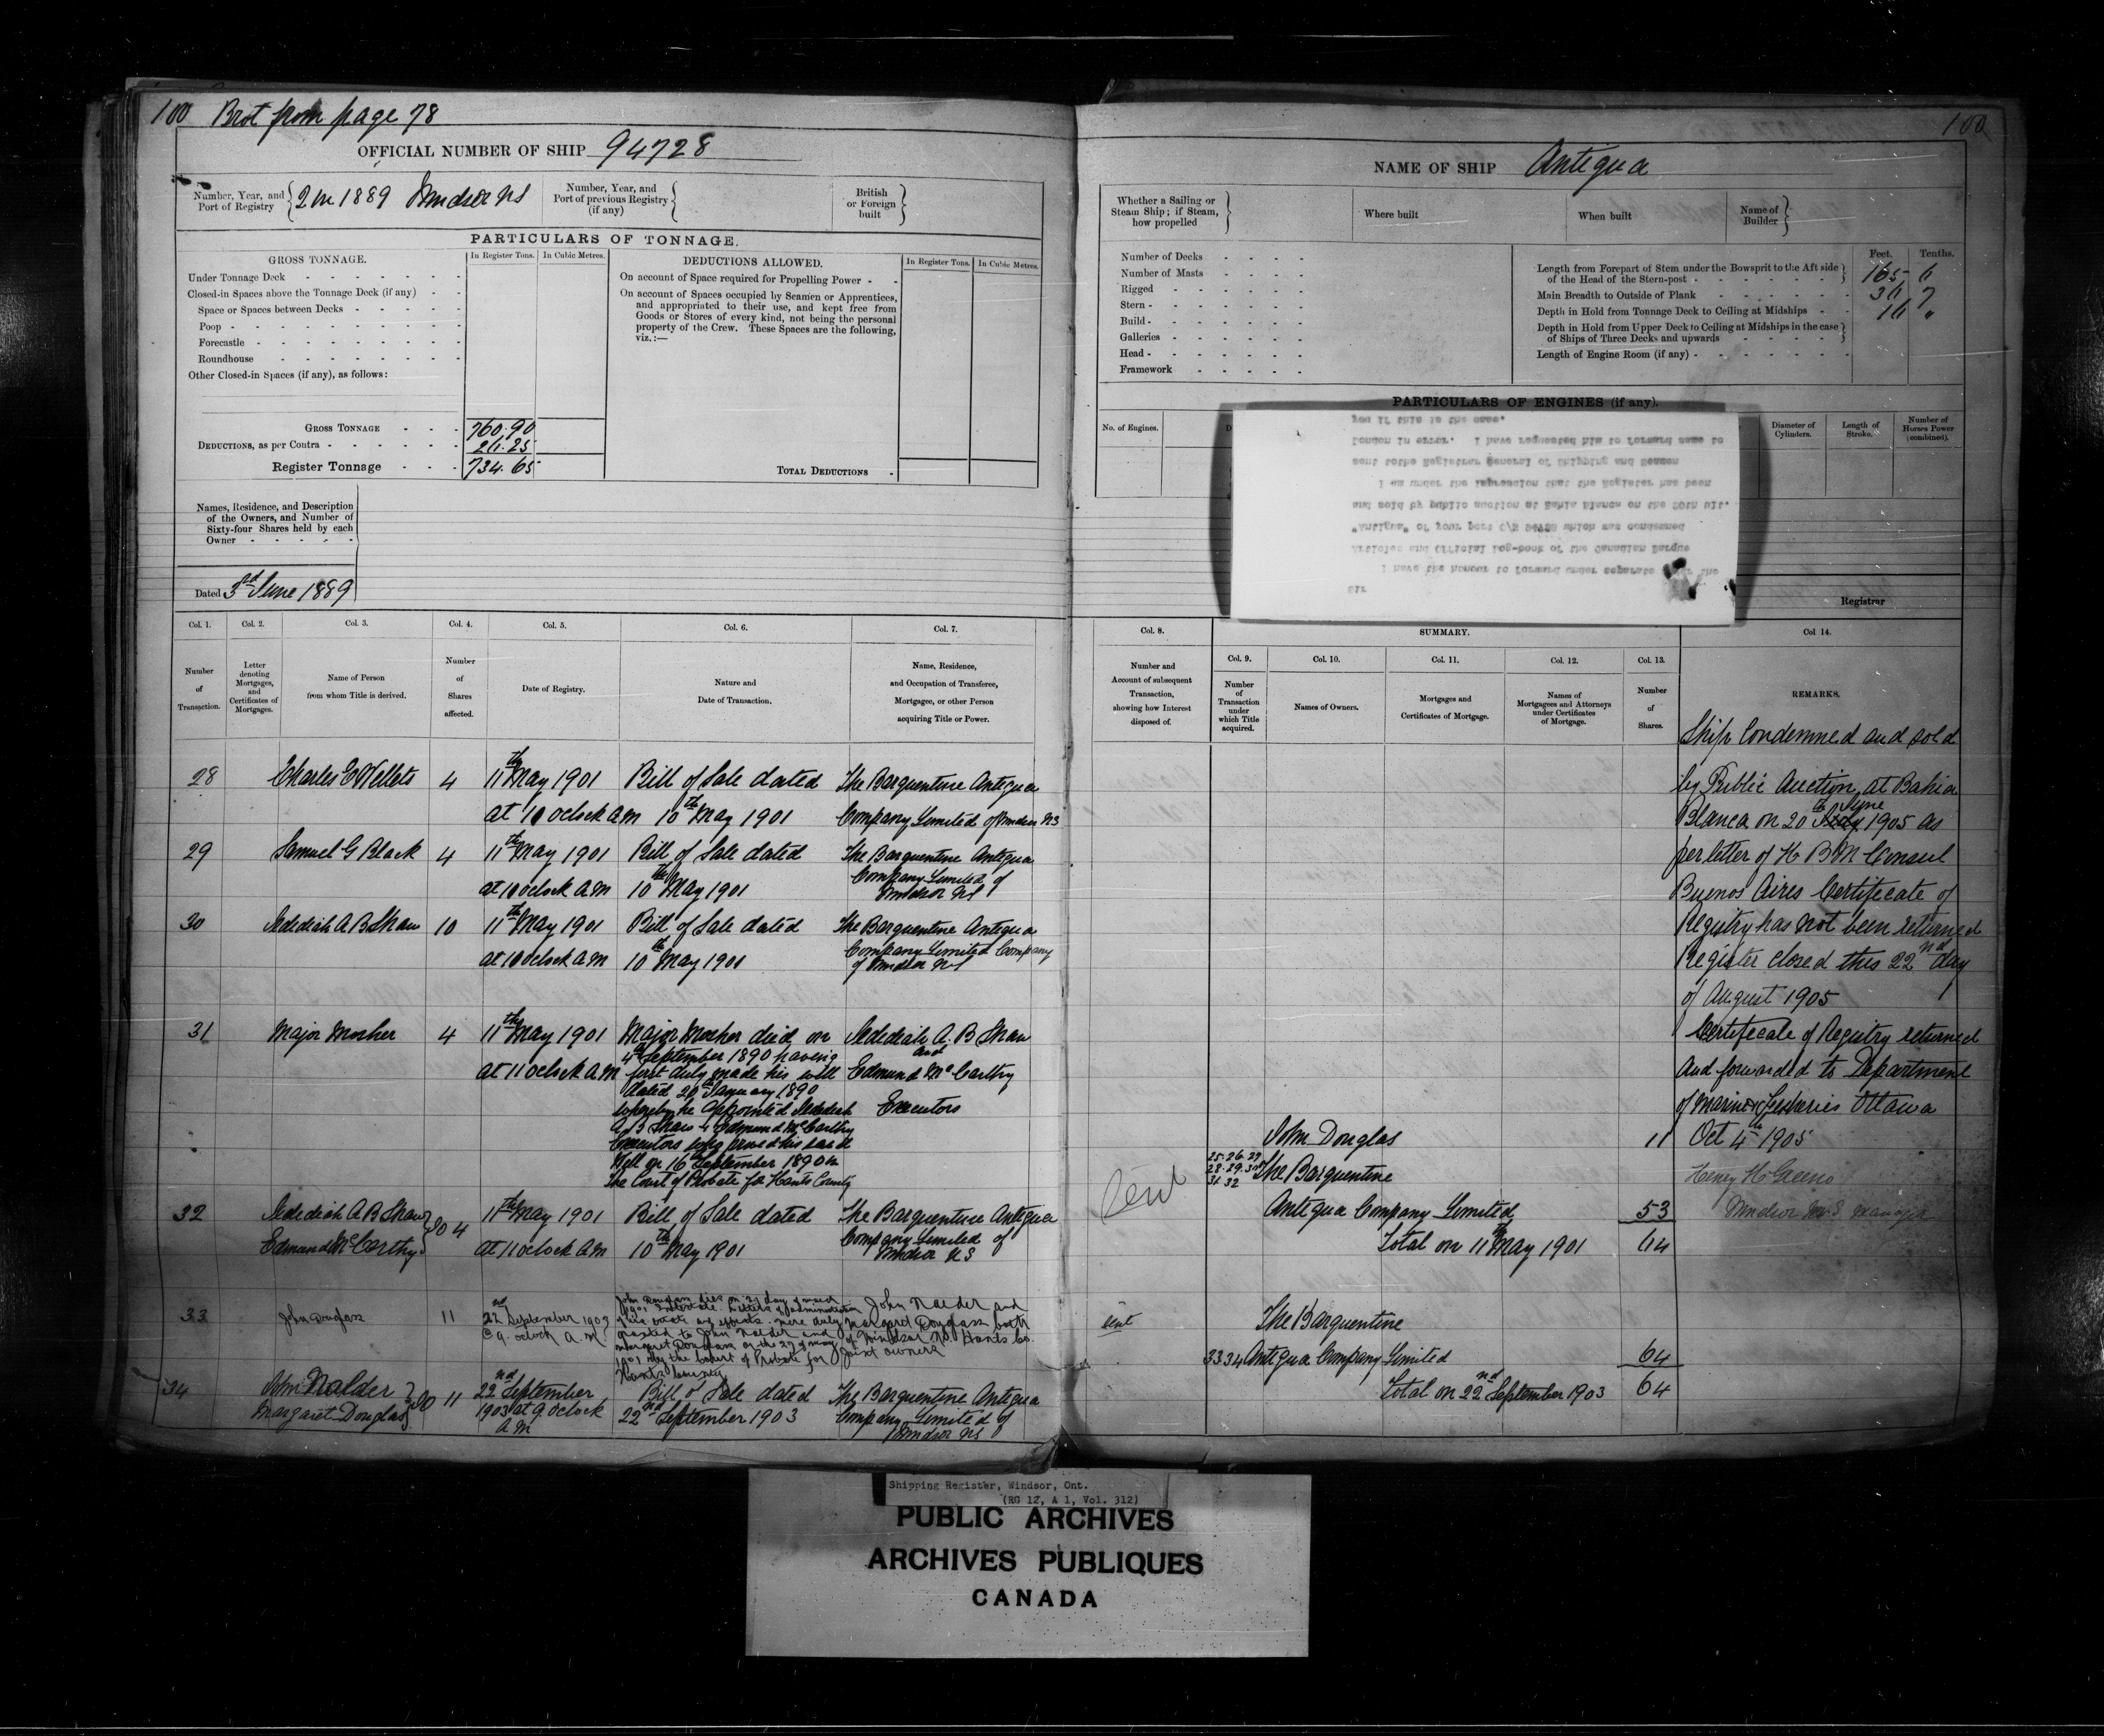 100 Brot from page 78
OFFICIAL NUMBER OF SHIP 94728
Number, Year, and Port of Registry 2 in 1889 Windsor NS
Number, Year, and Port of previous Registry (if any)
British or Foreign built
PARTICULARS OF TONNAGE.
GROSS TONNAGE.
In Register Tons. In Cubic Metres.
Under Tonnage Deck
Closed-in Spaces above the Tonnage Deck (if any)
Space or Spaces between Decks
Poop
Forecastle
Roundhouse
Other Closed-in Spaces (if any), as follows:
GROSS TONNAGE 760.90
DEDUCTIONS, as per Contra 26.25
Register Tonnage 734.65
DEDUCTIONS ALLOWED.
In Register Tons. In Cubic Metres.
On account of Space required for Propelling Power
On account of Spaces occupied by Seamen or Apprentices,
and appropriated to their use, and kept free from
Goods or Stores of every kind, not being the personal
property of the Crew. These Spaces are the following,
viz.:—
TOTAL DEDUCTIONS
Names, Residence, and Description
of the Owners, and Number of
Sixty-four Shares held by each
Owner
Dated 3rd June 1889
Col. 1. Col. 2. Col. 3. Col. 4. Col. 5. Col. 6. Col. 7.
Number of Transaction.
Letter denoting Mortgages, and Certificates of Mortgage.
Name of Person from whom Title is derived.
Number of Shares affected.
Date of Registry.
Nature and Date of Transaction.
Name, Residence, and Occupation of Transferee, Mortgagee, or other Person acquiring Title or Power.
28 Charles E Willets 4 11th May 1901 Bill of Sale dated The Barquentine Antigua
at 10 oclock AM 10th May 1901 Company Limited of Windsor NS
29 Samuel G Black 4 11th May 1901 Bill of Sale dated The Barquentine Antigua
at 10 oclock AM 10th May 1901 Company Limited of
Windsor NS
30 Jedediah A B Shaw 10 11th May 1901 Bill of Sale dated The Barquentine Antigua
at 10 oclock AM 10th May 1901 Company Limited Company
of Windsor NS
31 Major Mosher 4 11th May 1901 Major Mosher died on Jedediah A. B Shaw
4th September 1890 having and
at 11 oclock AM first duly made his will Edmund McCarthy
dated 20th January 1890
whereby he appointed Jedediah Executors
A B Shaw & Edmund McCarthy
Executors
Will on 16th September 1890 in
The Court of Probate for Hants County
32 Jedediah A B Shaw JO 4 11th May 1901 Bill of Sale dated The Barquentine Antigua
Edmund McCarthy at 11 oclock AM 10th May 1901 Company Limited of
Windsor NS
33 John Douglass 11 22nd September 1903
@ 9. oclock A.M.
John Douglass dies on 27 day of March
1901 Intestate. Letters of administration
of his estate and effects. were duly
granted to John Nalder and
Margaret Douglass on the 27 of May
1901 by the Court of Probate for
Hants County
John Nalder and
Margaret Douglass both
of Windsor NS Hants Co.
Joint owners
34 John Nalder JO 11 22nd September Bill of Sale dated The Barquentine Antigua
Margaret Douglas 1903 at 9. oclock 22nd September 1903 Company Limited of
AM Windsor NS
100
NAME OF SHIP Antigua
Whether a Sailing or Steam Ship; if Steam, how propelled
Where built
When built
Name of Builder
Number of Decks
Number of Masts
Rigged
Stern
Build
Galleries
Head
Framework
Feet. Tenths.
Length from Forepart of Stem under the Bowsprit to the Aft side
of the Head of the Stern-post 165 6
Main Breadth to Outside of Plank 36 7
Depth in Hold from Tonnage Deck to Ceiling at Midships 16 "
Depth in Hold from Upper Deck to Ceiling at Midships in the case
of Ships of Three Decks and upwards
Length of Engine Room (if any)
PARTICULARS OF ENGINES (if any).
No. of Engines.
Diameter of Cylinders.
Length of Stroke.
Number of Horses Power (combined).
Sir
I have the honour to forward under separate the
Articles and Official Log-book of the Canadian Barque
"Antigua" of your port O/N 94728 which was condemned
and sold by public auction at Bahia Blanca on the 20th ult.
I am under the impression that the Register has been
sent to the Registrar General of Shipping and Seamen
London in error. I have requested him to forward same to
you if this is the case.
Registrar
Col. 8. SUMMARY. Col 14.
Col. 9. Col. 10. Col. 11. Col. 12. Col. 13.
Number and Account of subsequent Transaction, showing how Interest disposed of.
Number of Transaction under which Title acquired.
Names of Owners.
Mortgages and Certificates of Mortgage.
Names of Mortgagees and Attorneys under Certificates of Mortgage.
Number of Shares.
REMARKS.
Ship Condemned and sold
by Public Auction, at Bahia
Blanca on 20th May June 1905 as
per letter of H B M Consul
Buenos Aires Certificate of
Registry has not been returned
Register closed this 22nd day
of August 1905
Certificate of Registry returned
and forwarded to Department
of Marine & Fisheries Ottawa
Oct 4th 1905
Henry H Greeno
Windsor N.S. Manager
John Douglas 11
Sent
25.26.27
28.29.30
31 32 The Barquentine
Antigua Company Limited 53
Total on 11th May 1901 64
sent
The Barquentine
33 34 Antigua Company Limited 64
Total on 22nd September 1903 64
Shipping Register, Windsor, Ont.
(RG 12, A 1, Vol. 312)
PUBLIC ARCHIVES
ARCHIVES PUBLIQUES
CANADA